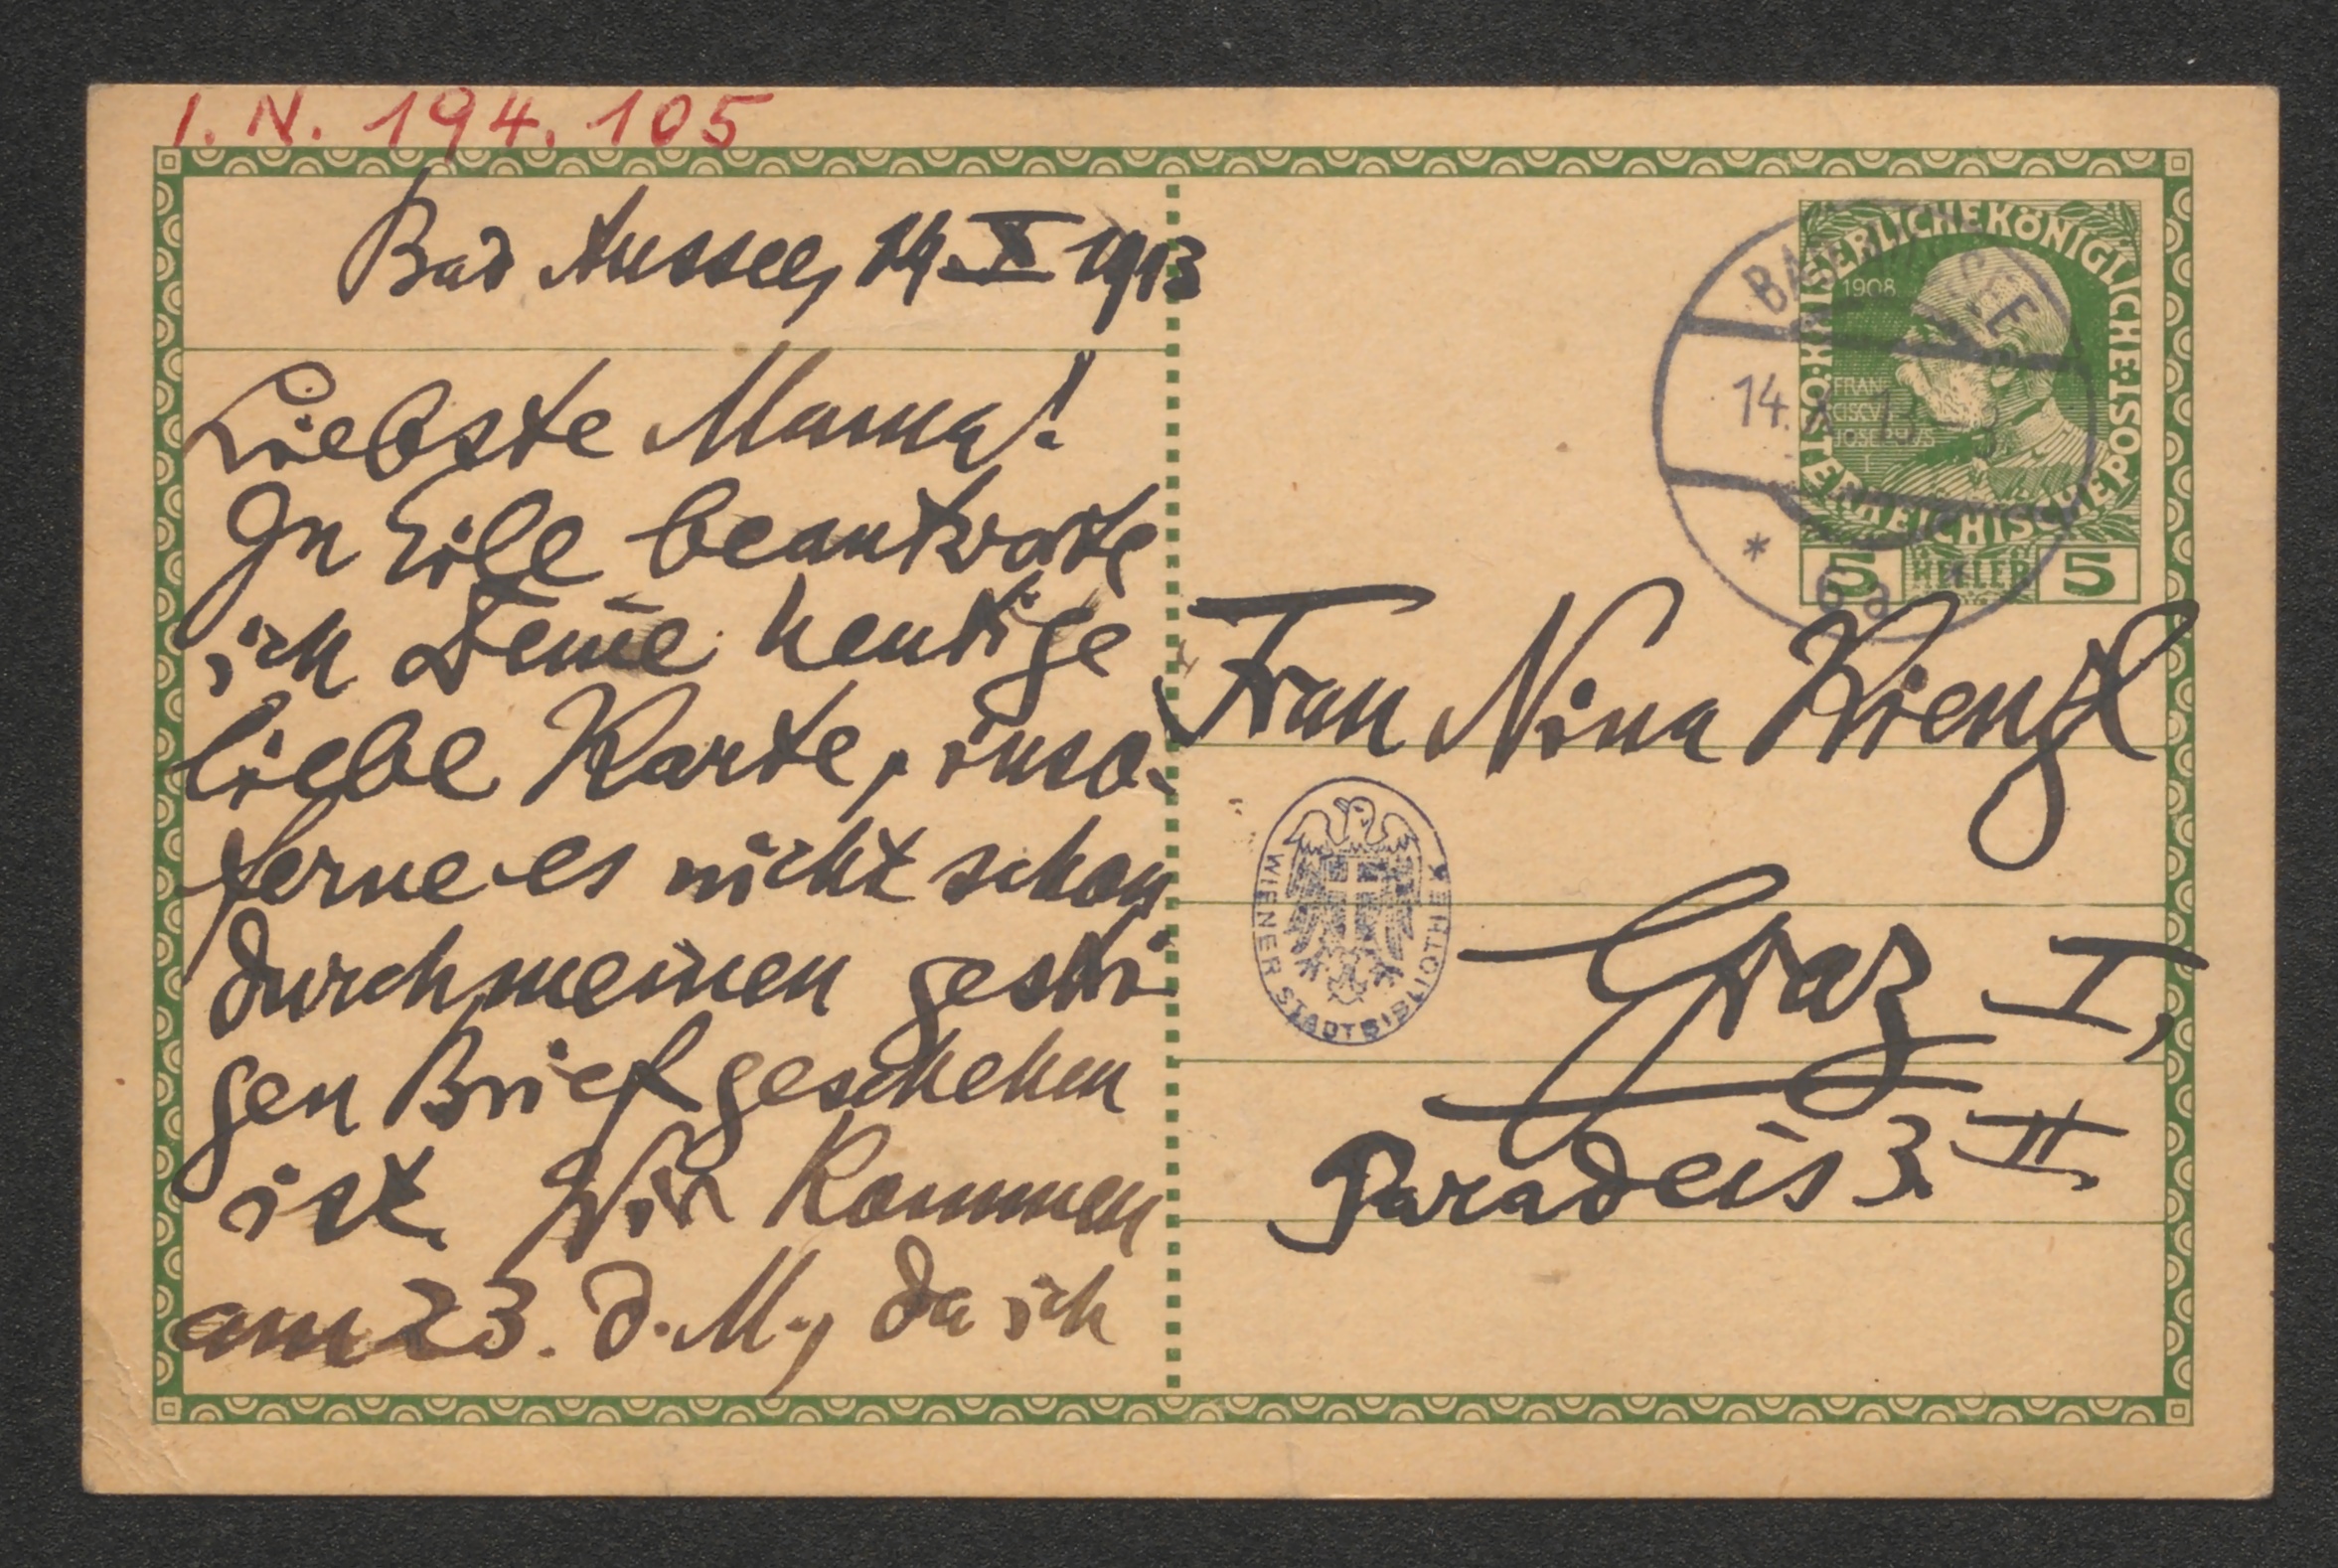 I. N. 194.105
Bad Aussee, 14. X 1913
Liebste Mama!
In Eile beantworte
ich Deine heutige
liebe Karte, inso-
ferne es nicht schon
durch meinen gestri
gen Brief geschehen
ist. Wir kommen
am 23. d. M., da ich
KAISERLICHE KÖNIGLICHE ÖSTERREICHISCHE POST
1908
FRAN
CISCVS
JOSEPHVS
I
5 HELLER 5
BAD AUSSEE
14. X 13
6a
Frau Nina Kienzl
Graz I,
Paradeis 3. II.
WIENER STADTBIBLIOTHEK